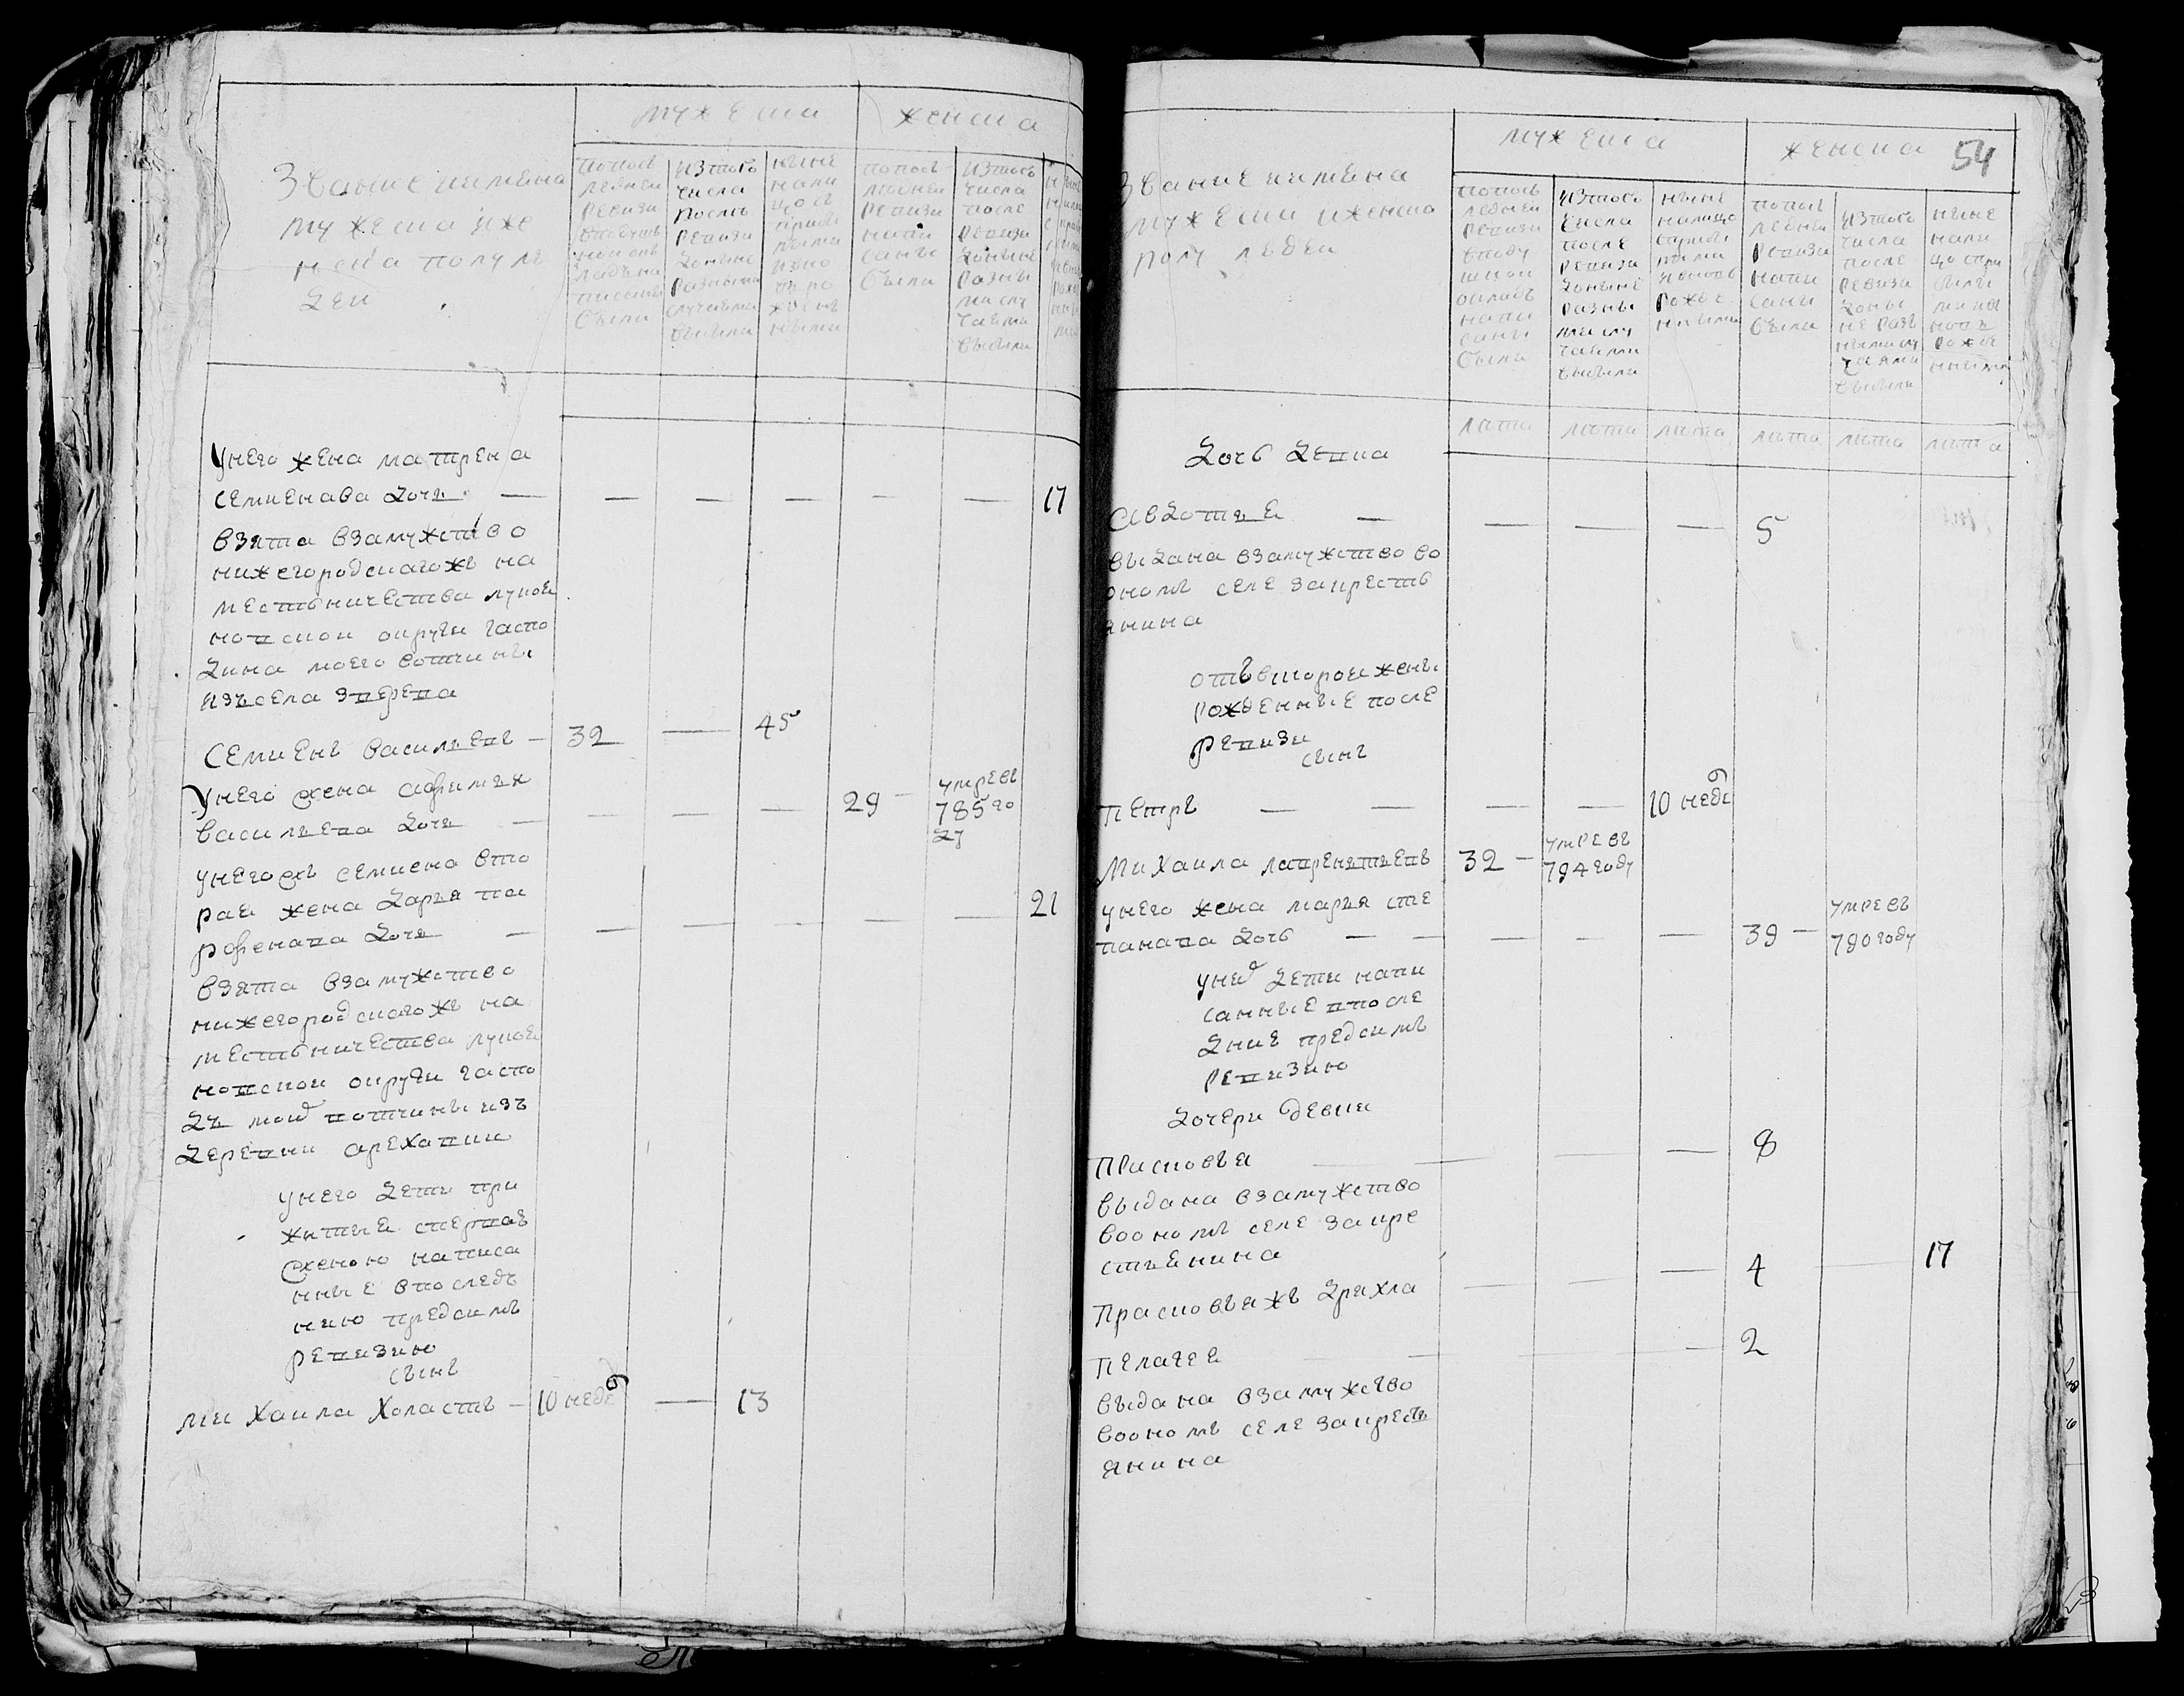 мужеска
женска
Звание иимена
мужеска иже
нска полу лю
деи
попось
леднеи
ревизи
вподуш
были
изтого
числа
после
ревизи
доныне
разными
случаями
выбыли
ныне
нали
цо съ
прибы
лыми
попось
леднеи
ревизи
напи
саны
были
изтого
числа
после
ревизи
доныне
разны
ми слу
чаями
выбыли
унего жена матрена
семиенава дочь 17
взята взамужство
нижегородскагожъ на
местьничества лукоя
новскои округи гаспо
дина моего вотчины
изъсела зверева
семиенъ васильевъ 32 45
унего жена афимья
васильева дочь 29 умре въ
785 го
ду
унегожъ семиена вто
рая жена дарья па
рфенава дочь 21
взята взамужство
нижегородскогожъ на
местьничества лукоя
новскои округи гаспо
дъ моих вотчины изъ
деревни ореховки
унего дети при
житыя спервою
женою написа
нные впоследъ
нию предсимъ
ревизию
сынъ
михаила холастъ 10 недел 13
мужеска
женска
54
Звание иимена
мужеска иженска
полу людеи
попось
ледней
ревизи
вподу
шнои
окладъ
напи
саны
были
изтого
числа
после
ревизи
доныне
разны
ми слу
чаями
выбыли
ныне
налицо
сприбы
лыми
ивновь
рожде
ными
попось
ледней
ревизи
напи
саны
были
изтого
числа
после
ревизи
доны
не разъ
ными слу
чаями
выбыли
ныне
нали
цо спри
былы
ми ивъ
новь
рожде
ными
лета лета лета лета лета лета
дочь девка
Авдотья 5
выдана взамужство во
ономъ селе закресть
янина
отъвторои жены
рожденные после
ревизи
сынъ
петръ 10 недел
Михаила лаврентьевъ 32 умре въ
794 году
унего жена марья сте
панава дочь 39 умре въ
790 году
уних дети напи
санные впосле
дние предсимъ
ревизию
дочери девки
прасковья 8
выдана взамужство
воономъ селе закре
стьянина
Прасковьяжъ дряхла 4 17
пелагея 2
выдана взамужство
воономъ селе закресть
янина